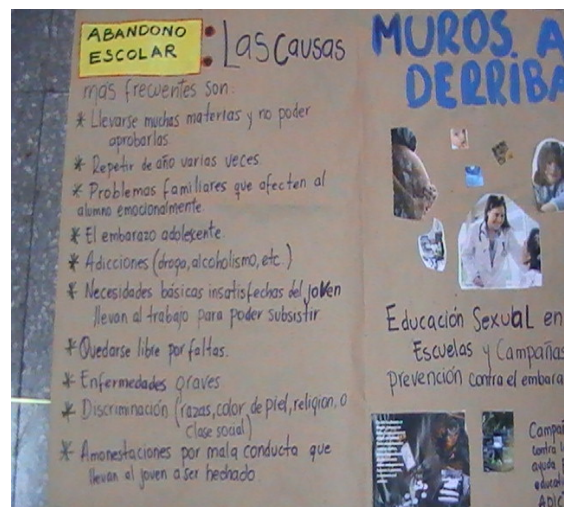 ABANDONO
ESCOLAR
: Las causas
más frecuentes son:
* Llevarse muchas materias y no poder
aprobarlas
* Repetir de año varias veces.
* Problemas familiares que afecten al
alumno emocionalmente.
* El embarazo adolescente
* Adicciones (droga, alcoholismo, etc.)
* Necesidades básicas insatisfechas del joven
llevan al trabajo para poder subsistir
* Quedarse libre por faltas.
* Enfermedades graves
* Discriminación (razas, color de piel, religion, o
clase social)
* Amonestaciones por mala conducta que
llevan al joven a ser hechado
MUROS A
DERRIBA
Educación Sexual en
Escuelas y Campañas
Prevención contra el embara
Campañ
contra l
ayuda
educat
ADIC